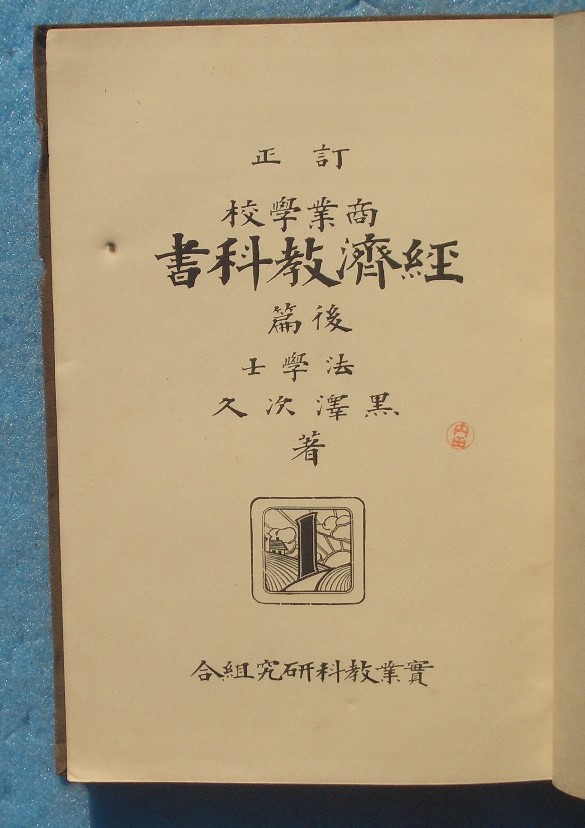 訂正
商業學校
經濟教科書
後篇
法學士
黑澤次久
著
內田
1
實業教科研究組合